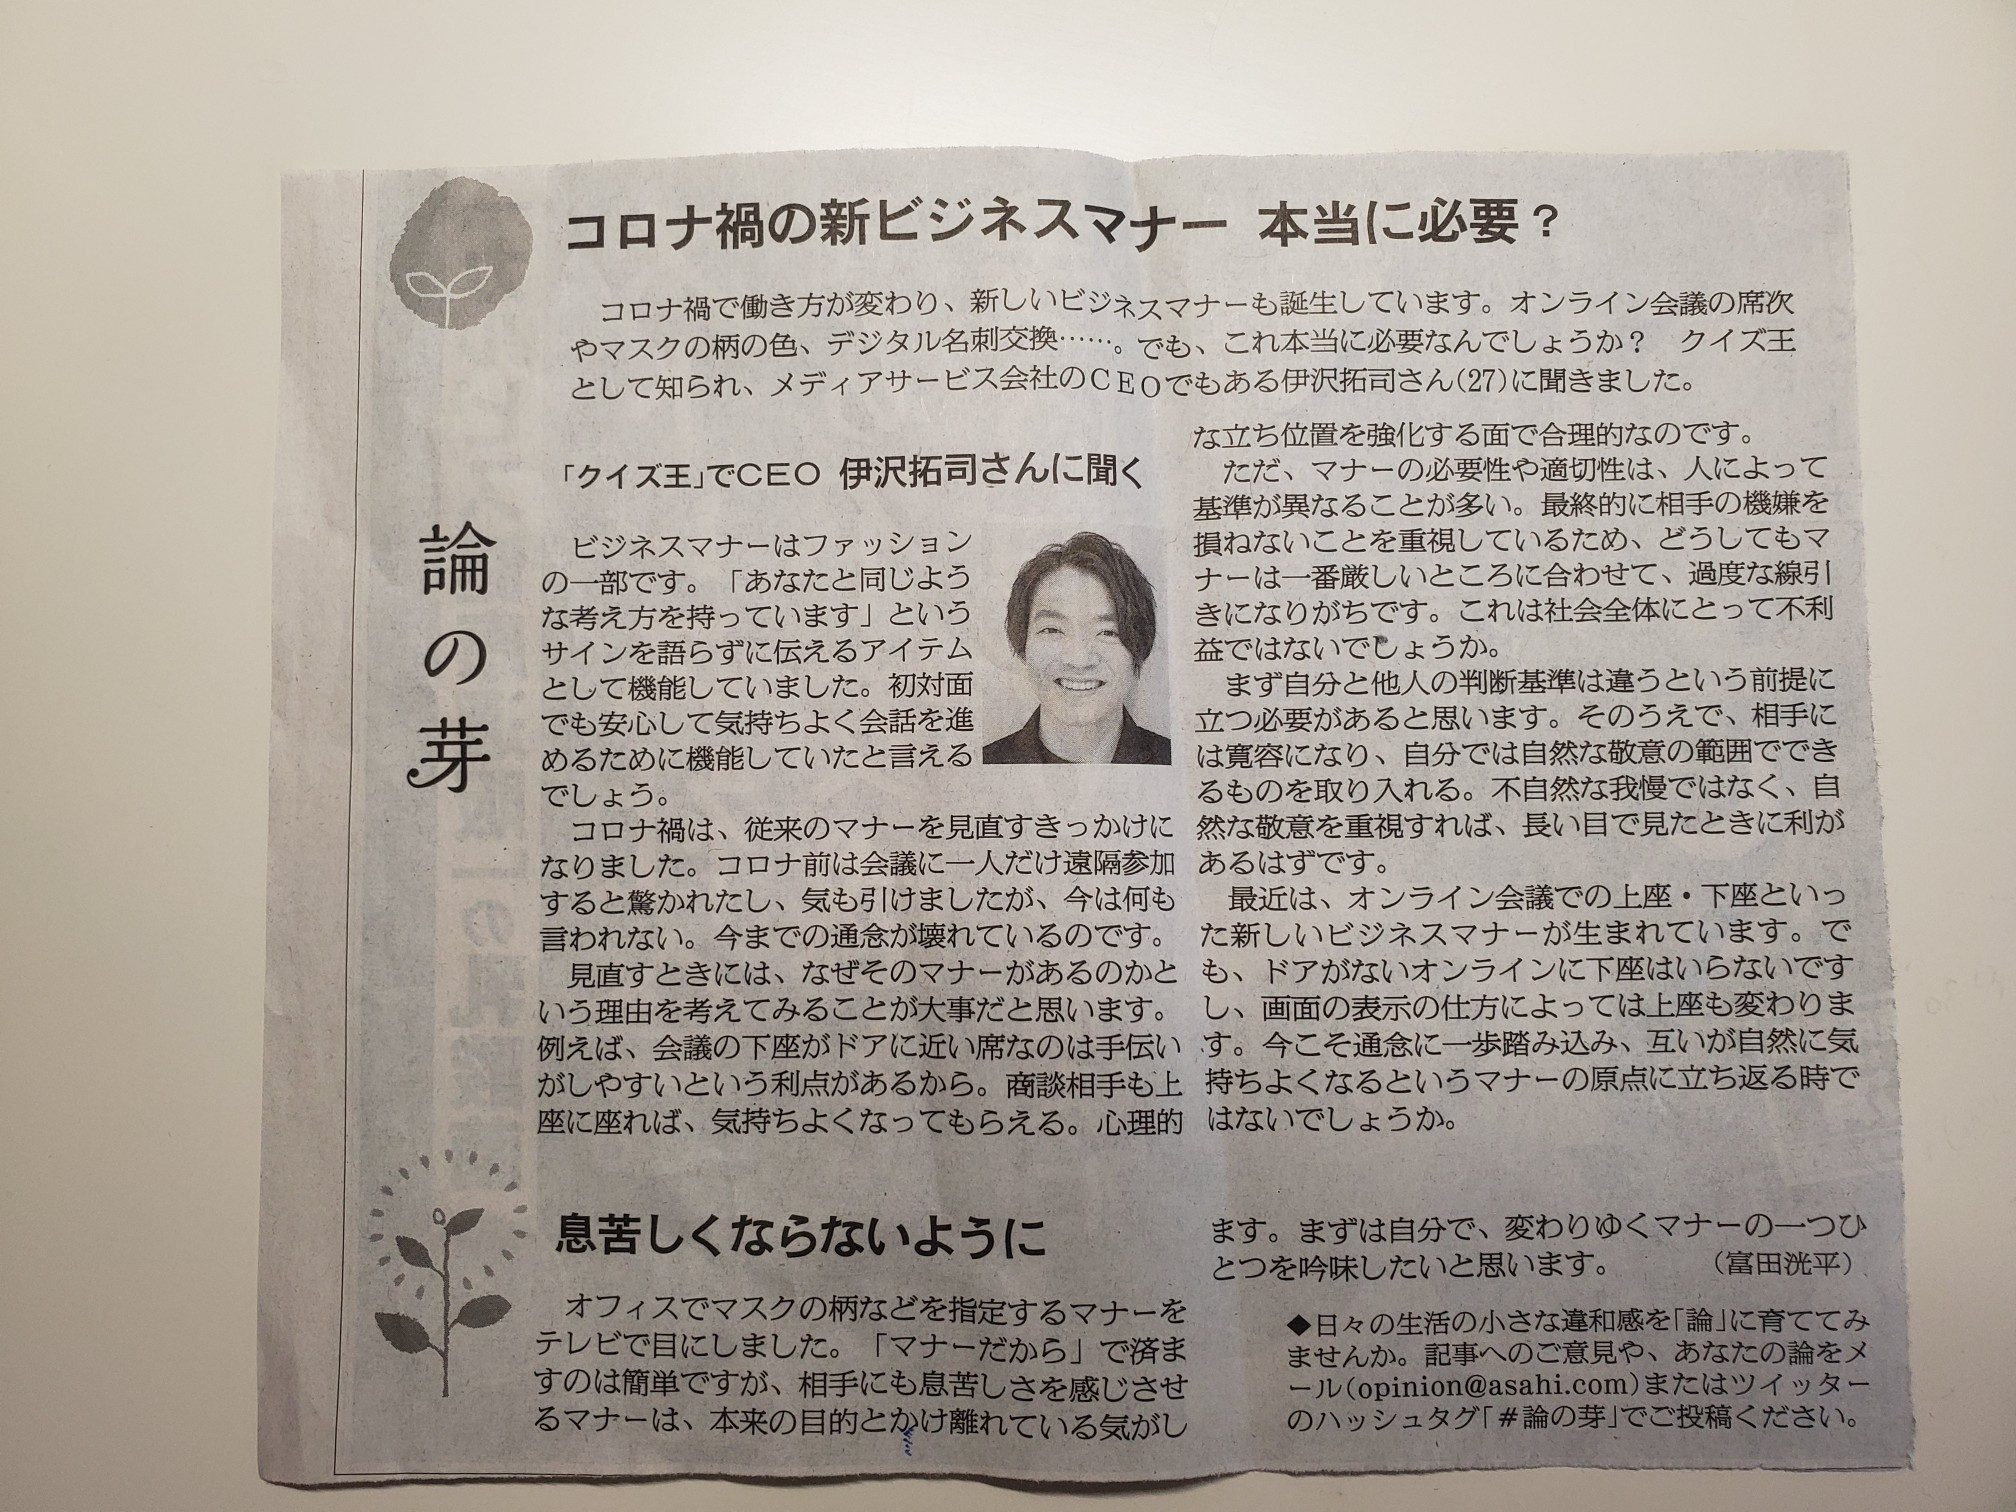 コロナ禍の新ビジネスマナー 本当に必要？
コロナ禍で働き方が変わり、新しいビジネスマナーも誕生しています。オンライン会議の席次
やマスクの柄の色、デジタル名刺交換……。でも、これ本当に必要なんでしょうか？　クイズ王
として知られ、メディアサービス会社のＣＥＯでもある伊沢拓司さん(27)に聞きました。
論の芽
「クイズ王」でＣＥＯ 伊沢拓司さんに聞く
ビジネスマナーはファッション
の一部です。「あなたと同じよう
な考え方を持っています」という
サインを語らずに伝えるアイテム
として機能していました。初対面
でも安心して気持ちよく会話を進
めるために機能していたと言える
でしょう。
コロナ禍は、従来のマナーを見直すきっかけに
なりました。コロナ前は会議に一人だけ遠隔参加
すると驚かれたし、気も引けましたが、今は何も
言われない。今までの通念が壊れているのです。
見直すときには、なぜそのマナーがあるのかと
いう理由を考えてみることが大事だと思います。
例えば、会議の下座がドアに近い席なのは手伝い
がしやすいという利点があるから。商談相手も上
座に座れば、気持ちよくなってもらえる。心理的
な立ち位置を強化する面で合理的なのです。
ただ、マナーの必要性や適切性は、人によって
基準が異なることが多い。最終的に相手の機嫌を
損ねないことを重視しているため、どうしてもマ
ナーは一番厳しいところに合わせて、過度な線引
きになりがちです。これは社会全体にとって不利
益ではないでしょうか。
まず自分と他人の判断基準は違うという前提に
立つ必要があると思います。そのうえで、相手に
は寛容になり、自分では自然な敬意の範囲ででき
るものを取り入れる。不自然な我慢ではなく、自
然な敬意を重視すれば、長い目で見たときに利が
あるはずです。
最近は、オンライン会議での上座・下座といっ
た新しいビジネスマナーが生まれています。で
も、ドアがないオンラインに下座はいらないです
し、画面の表示の仕方によっては上座も変わりま
す。今こそ通念に一歩踏み込み、互いが自然に気
持ちよくなるというマナーの原点に立ち返る時で
はないでしょうか。
息苦しくならないように
オフィスでマスクの柄などを指定するマナーを
テレビで目にしました。「マナーだから」で済ま
すのは簡単ですが、相手にも息苦しさを感じさせ
るマナーは、本来の目的とかけ離れている気がし
ます。まずは自分で、変わりゆくマナーの一つひ
とつを吟味したいと思います。　（富田洸平）
◆日々の生活の小さな違和感を「論」に育ててみ
ませんか。記事へのご意見や、あなたの論をメ
ール(opinion@asahi.com)またはツイッター
のハッシュタグ「＃論の芽」でご投稿ください。